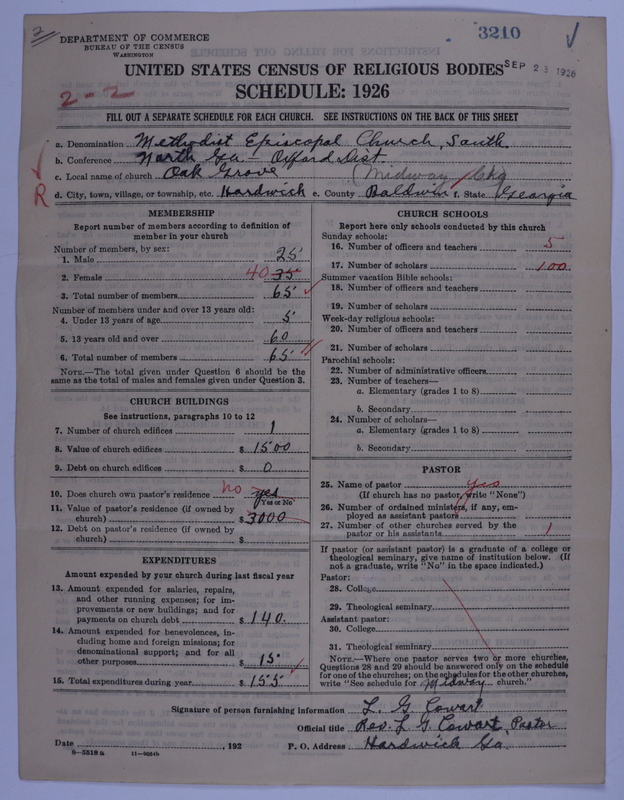 2
DEPARTMENT OF COMMERCE
BUREAU OF THE CENSUS
WASHINGTON
3210
SEP 23 1926
UNITED STATES CENSUS OF RELIGIOUS BODIES
2-2
SCHEDULE: 1926
FILL OUT A SEPARATE SCHEDULE FOR EACH CHURCH. SEE INSTRUCTIONS ON THE BACK OF THIS SHEET
a. Denomination Methodist Episcopal Church, South
b. Conference North Ga - Oxford Dist.
c. Local name of church Oak Grove (Midway Chg
R
d. City, town, village, or township, etc. Hardwick e. County Baldwin f. State Georgia
MEMBERSHIP
Report number of members according to definition of
member in your church
Number of members, by sex:
1. Male 25
2. Female 40 35
3. Total number of members 65
Number of members under and over 13 years old:
4. Under 13 years of age 5
5. 13 years old and over 60
6. Total number of members 65
NOTE.—The total given under Question 6 should be
same as the total of males and females given under Question 3.
CHURCH BUILDINGS
See instructions, paragraphs 10 to 12
7. Number of church edifices 1
8. Value of church edifices $1500
9. Debt on church edifices $ 0
10. Does church own pastor's residence no yes
Yes or No
11. Value of pastor's residence (if owned by
church) $3000
12. Debt on pastor's residence (if owned by
church) $
EXPENDITURES
Amount expended by your church during last fiscal year
13. Amount expended for salaries, repairs,
and other running expenses; for im-
provements or new buildings; and for
payments on church debt $140.
14. Amount expended for benevolences, in-
cluding home and foreign missions; for
denominational support; and for all
other purposes $ 15.
15. Total expenditures during year $155
CHURCH SCHOOLS
Report here only schools conducted by this church
Sunday schools:
16. Number of officers and teachers 5
17. Number of scholars 100
Summer vacation Bible schools:
18. Number of officers and teachers
19. Number of scholars
Week-day religious schools:
20. Number of officers and teachers
21. Number of scholars
Parochial schools:
22. Number of administrative officers
23. Number of teachers—
a. Elementary (grades 1 to 8)
b. Secondary
24. Number of scholars—
a. Elementary (grades 1 to 8)
b. Secondary
PASTOR
25. Name of pastor yes
(If church has no pastor, write "None")
26. Number of ordained ministers, if any, em-
ployed as assistant pastors
27. Number of other churches served by the
pastor or his assistants 1
If pastor (or assistant pastor) is a graduate of a college or
theological seminary, give name of institution below. (If
not a graduate, write "No" in the space indicated.)
Pastor:
28. College
29. Theological seminary
Assistant pastor:
30. College
31. Theological seminary
NOTE.—Where one pastor serves two or more churches,
Questions 28 and 29 should be answered only on the schedule
for one of the churches; on the schedules for the other churches,
write "See schedule for Midway church."
Signature of person furnishing information L. G. Cowart
Official title Rev. L G. Cowart, Pastor
Date , 192 P. O. Address Hardwick Ga.